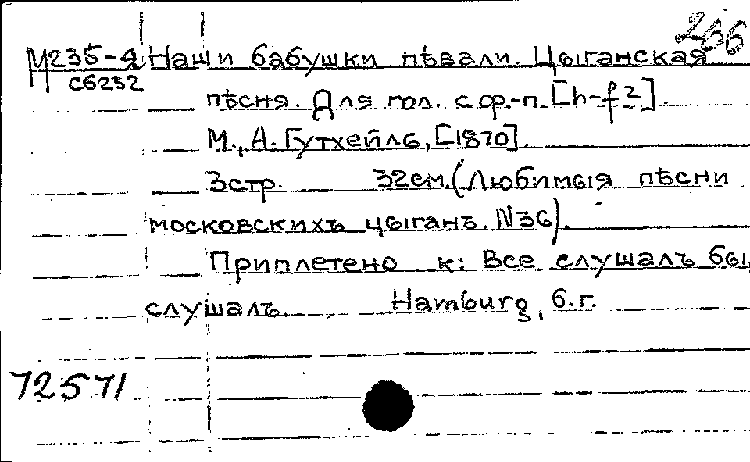 236
М235-4 Наши бабушки пѣвали. Цыганская
С6232
пѣсня. Для гол. с ф.-п. [h-f2].
М., А. Гутхейль, [1870].
3стр. 32см. (Любимыя пѣсни
московскихъ цыганъ. N36).
Приплетено к: Все слушалъ бы,
слушалъ. Hamburg, б.г.
72571